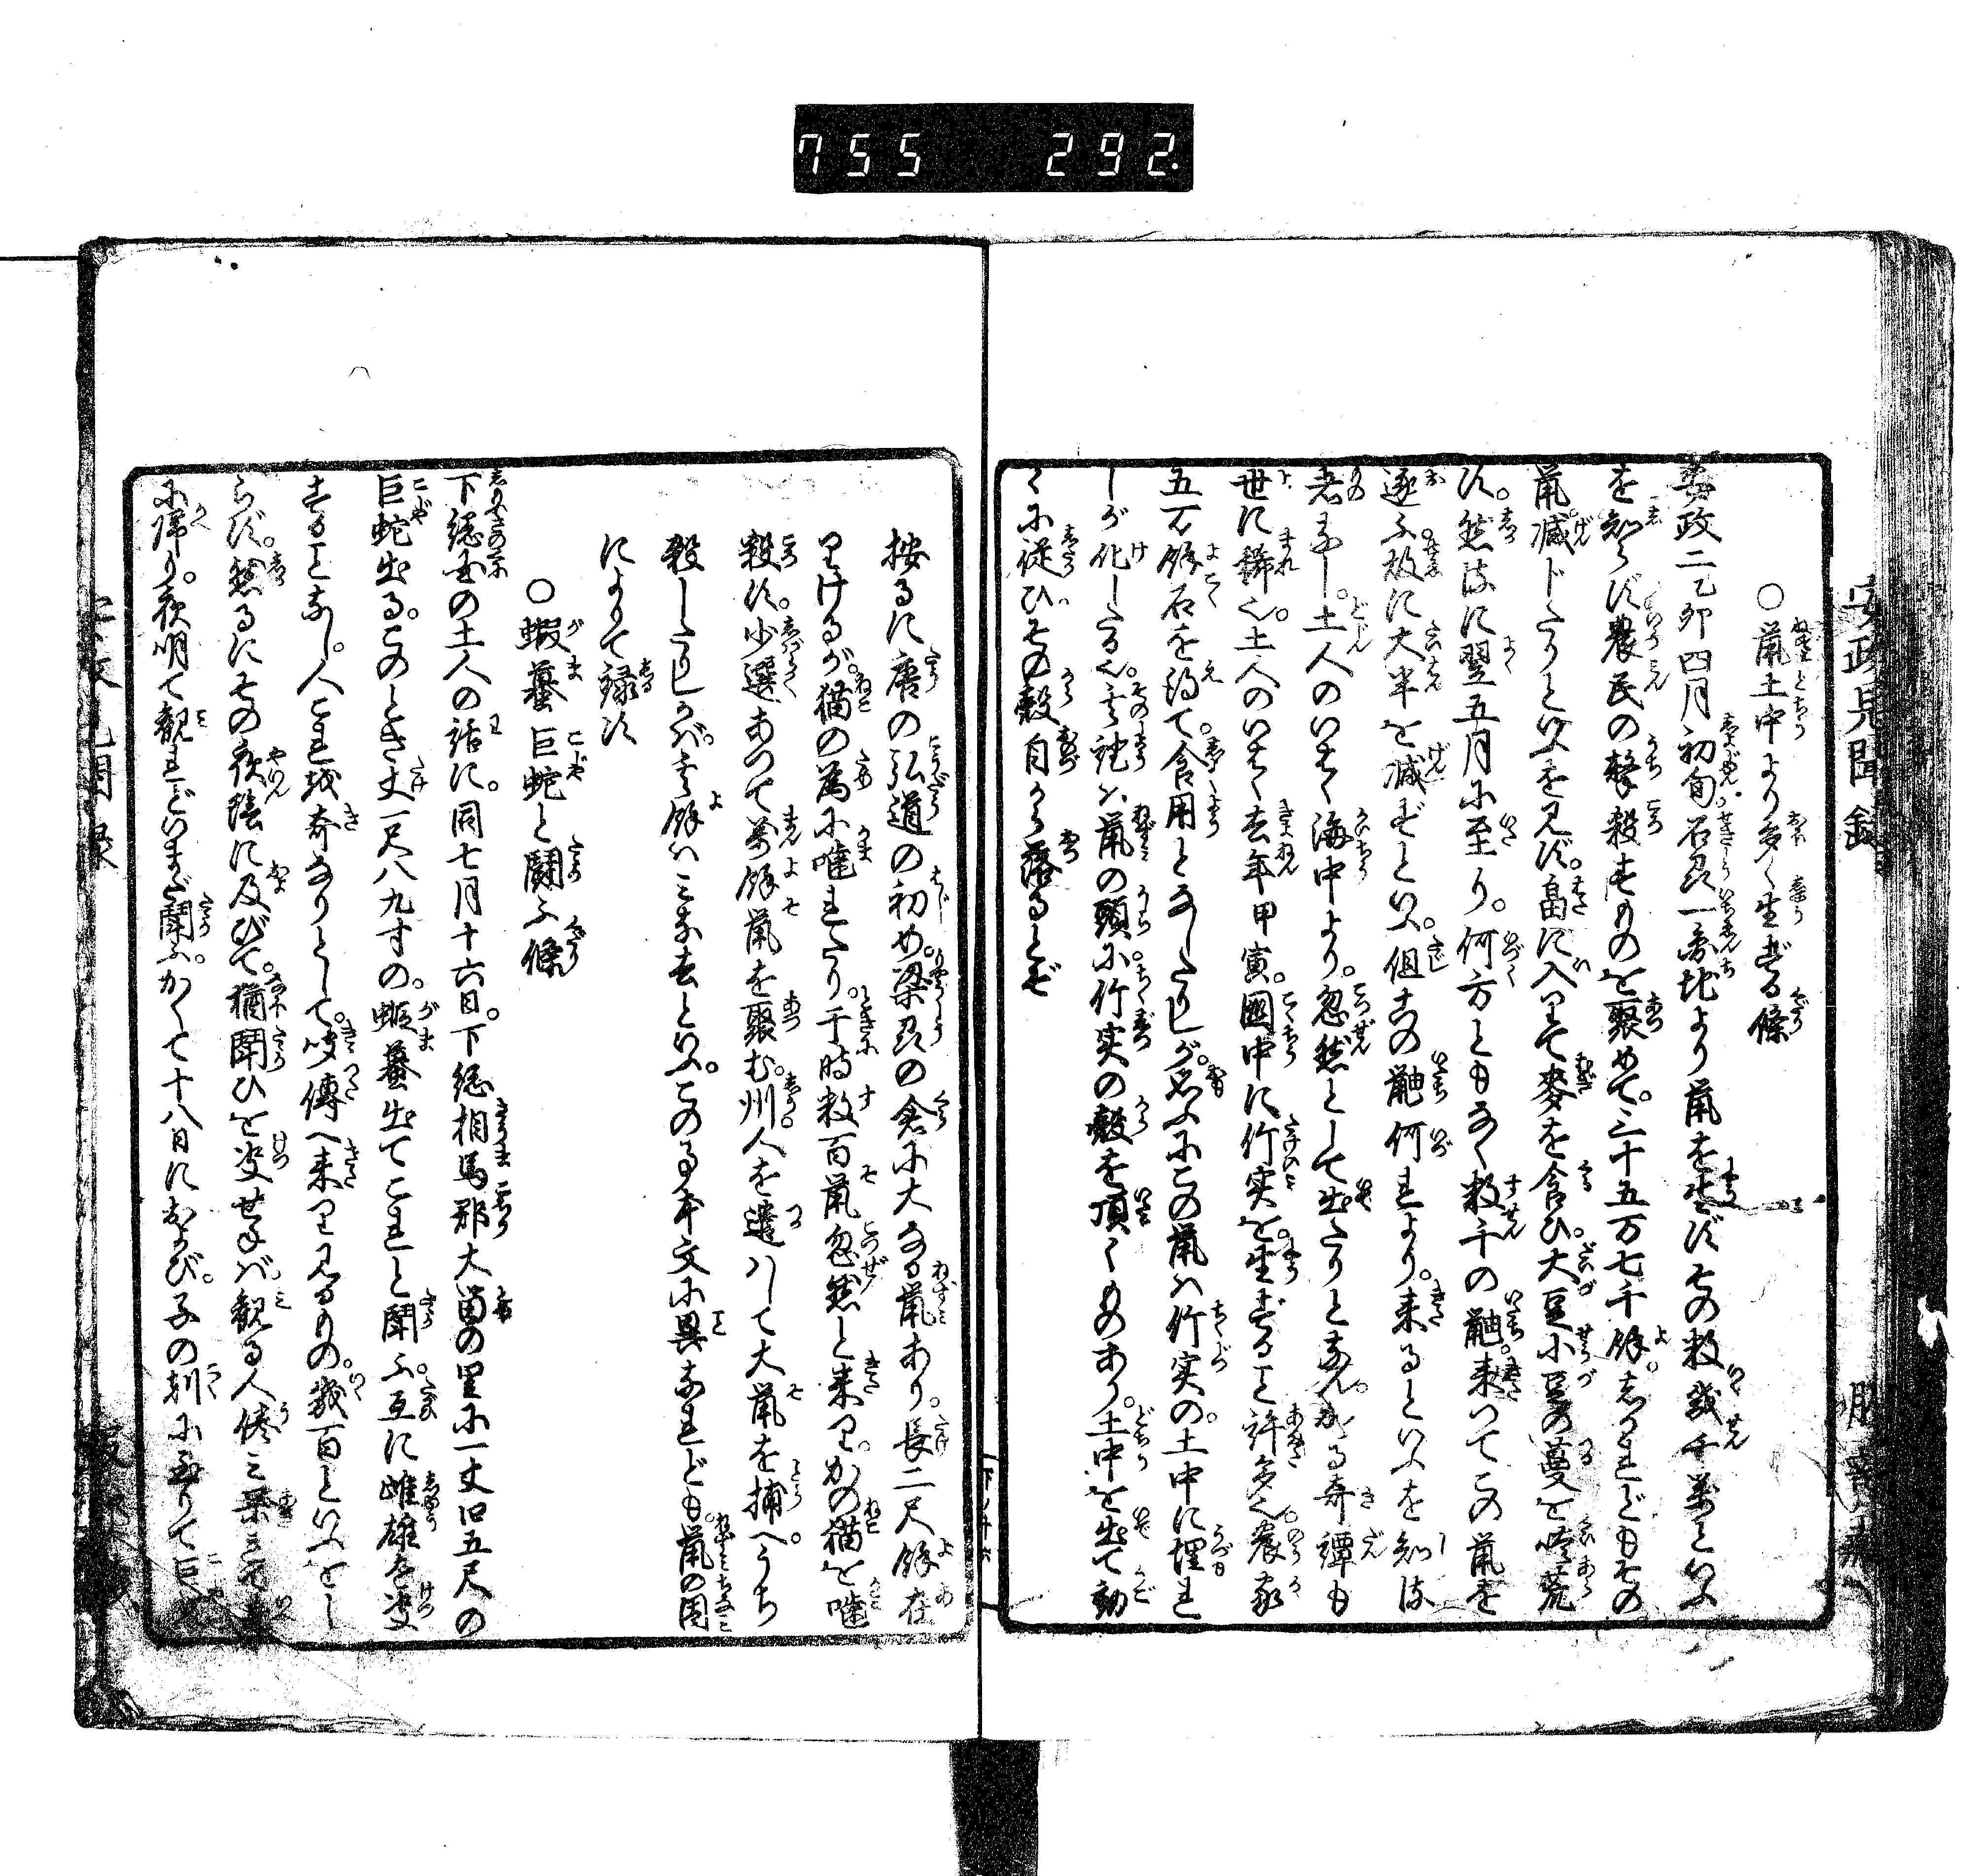 755 292.
安政見聞録
○鼠土中より多く生ずる條
安政二乙卯四月初旬。石見一円地より鼠を生ず其数幾千万といふ
を知らず農民の撃殺すものを聚めて。三十五万七千餘。しかれどもその
鼠減ドたりといふを見ず。畠に入りて麥を含ひ。大豆小豆の蔓を喰荒
す。然るに翌五月に至り。何方ともなく数千の鼬。来つてこの鼠を
逐ふ。故に大半を減ぜしといふ。但その鼬何れより。来るといふを知る
者なし。土人のいはく海中より。忽然として出たりとなん。かゝる奇譚も
世に稀也。土人のいはく去年甲寅。國中に竹実を。生ずること許多也。農家
五万餘石を得て。食用となしたりしが。思ふにこの鼠ハ竹実の。土中に埋れ
しが化したる也。其証ハ鼠の頭に。竹実の殻を頂くものあり。土中を出て動
くに従ひその殻自から落るとぞ
按るに唐の弘道の初め。梁州の倉に大なる鼠あり。長二尺餘在
りけるが。猫の為に噛れたり。于時数百鼠忽然と来り。かの猫を噛
殺す。少選あつて万餘鼠を聚む。州人を遣ハして大鼠を捕へうち
殺したりしかバ。其餘ハみな去といふ。この事本文に異なれども。鼠の因
によりて録す
○蝦蟇巨蛇と闘ふ條
下総国の土人の話に。同七月十六日。下総相馬郡大留の里に一丈四五尺の
巨蛇出る。このとき丈一尺八九寸の。蝦蟇出てこれと闘ふ。互に雌雄を决
することなし。人これを奇なりとして。吹傳へ来り見るもの。幾百といふをし
らず。然るにその夜陰に及びて。猶闘ひを决せねバ。観る人倦み果みな家
に帰り。夜明て観れどいまだ闘ふ。かくて十八日におよび。子の刻に至りて巨